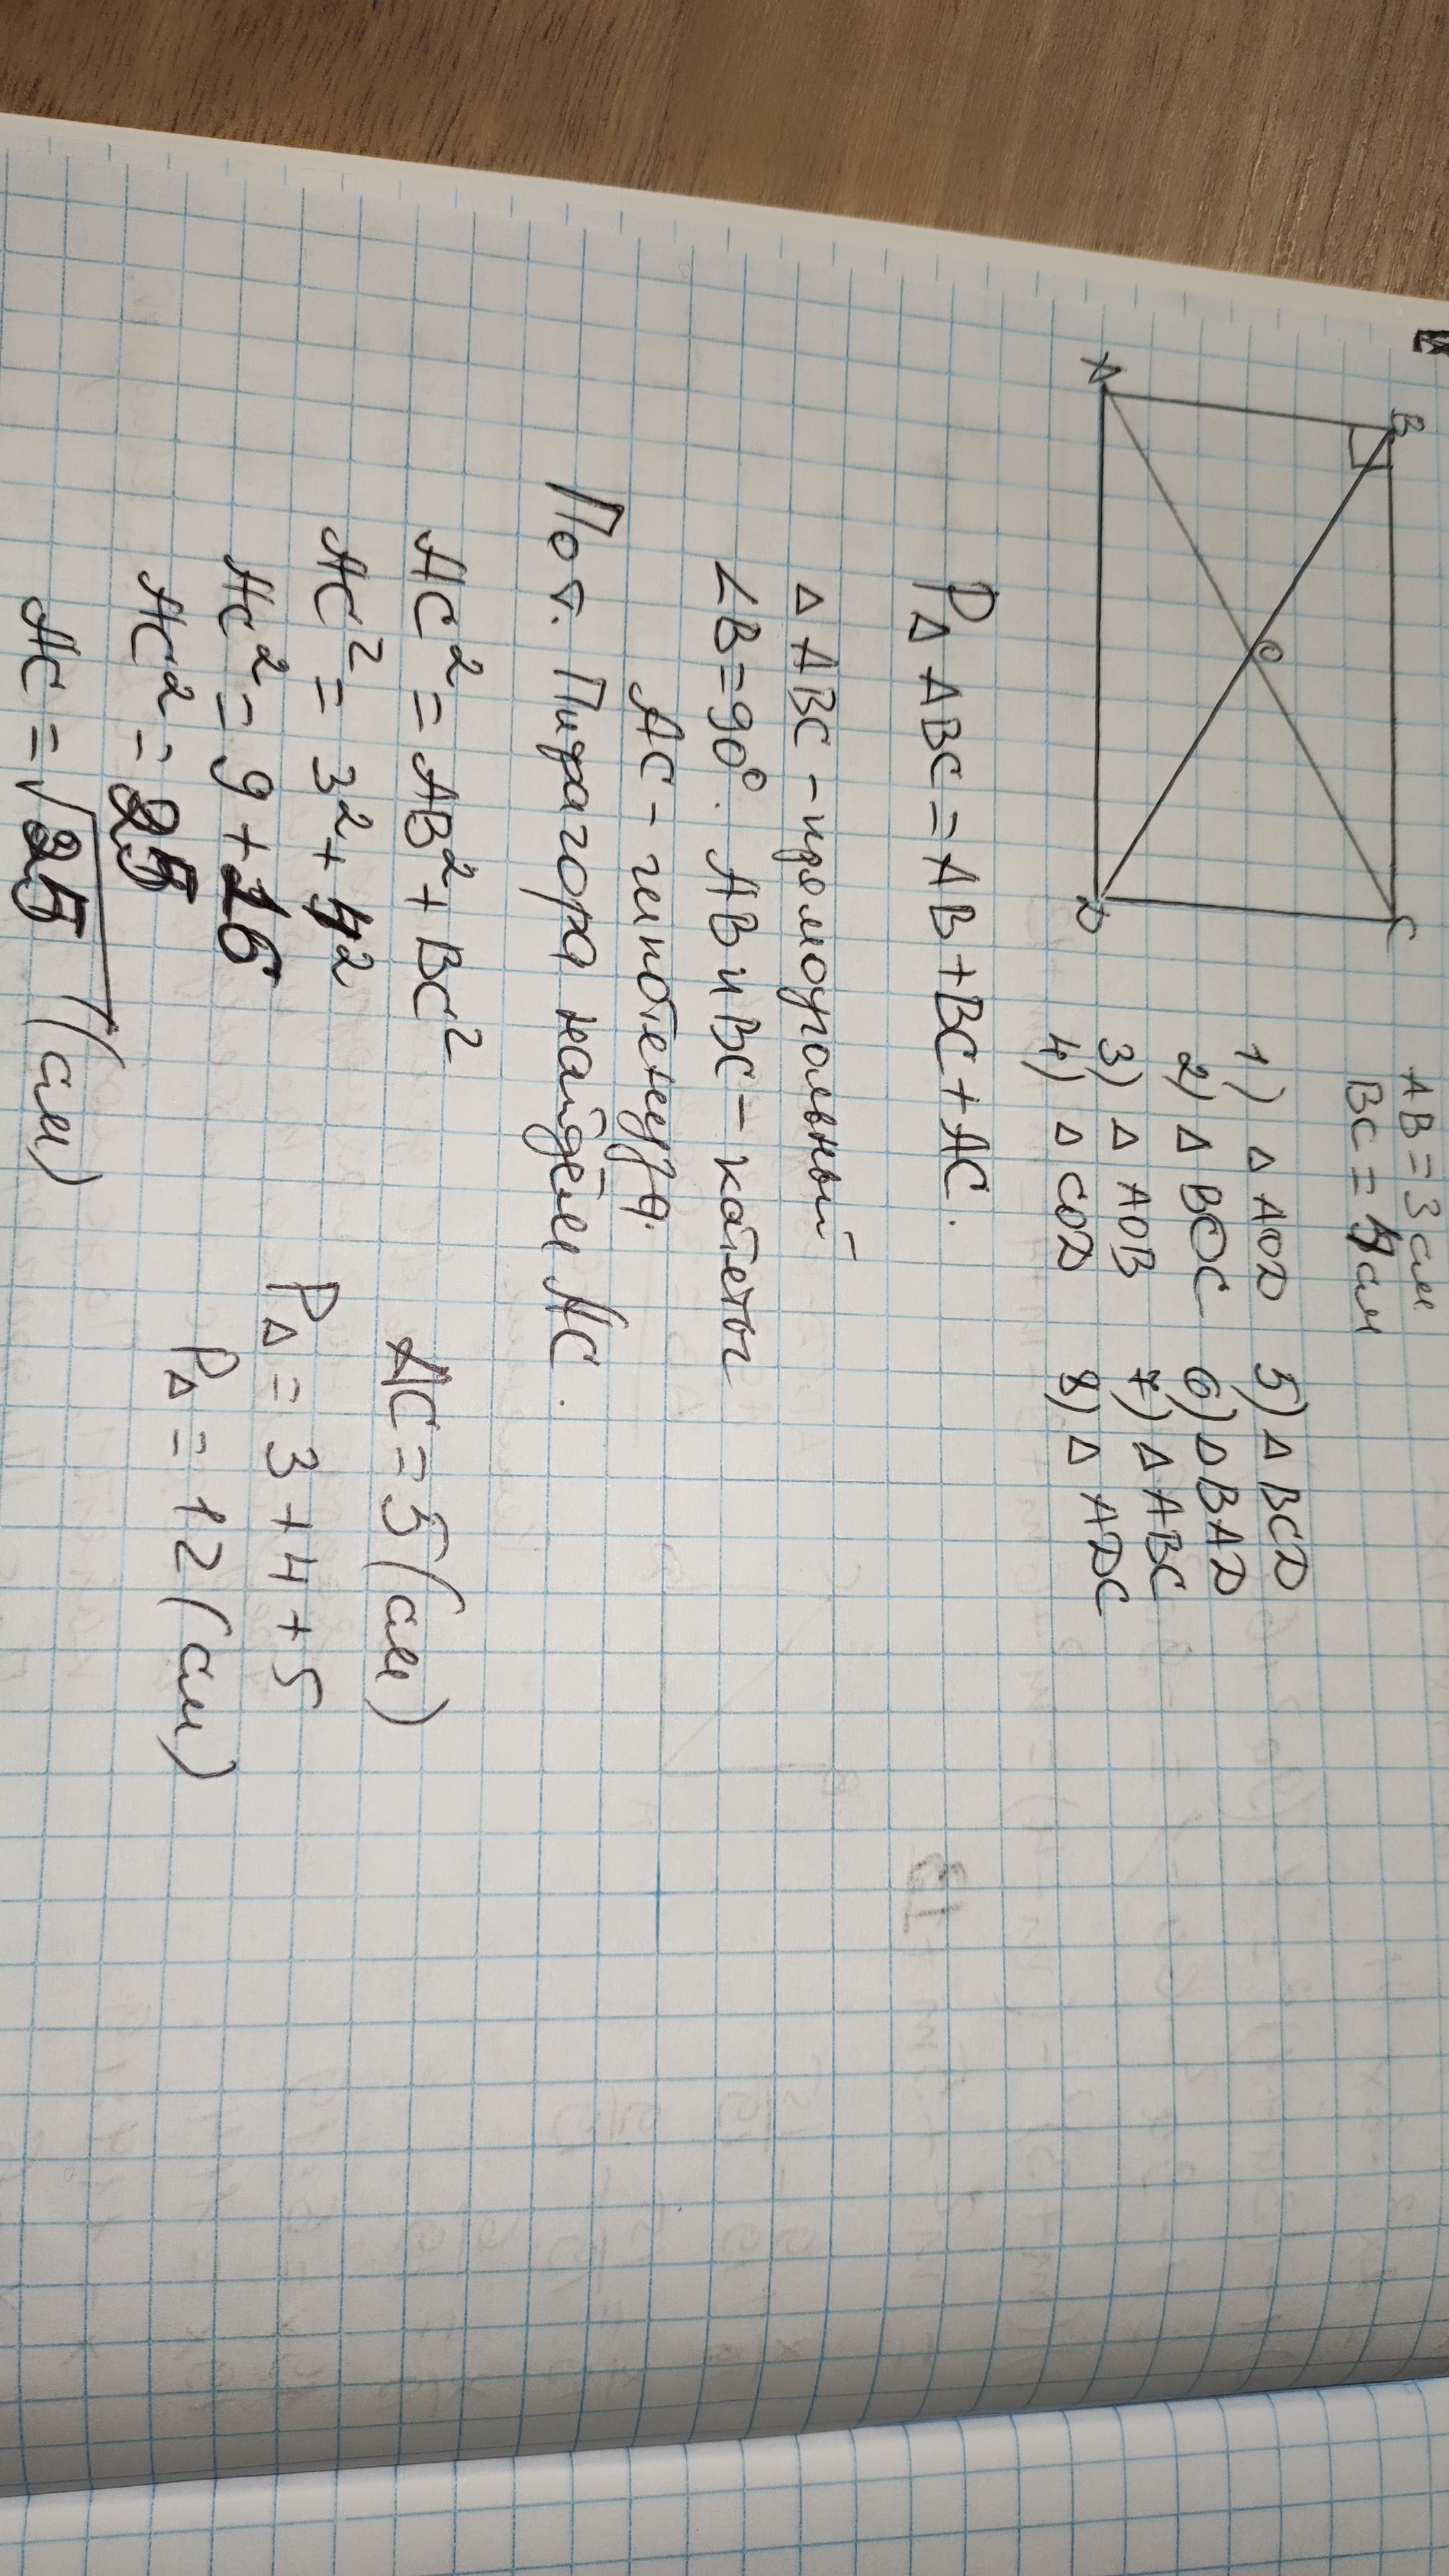 B
C
A
D
O
AB = 3 см
BC = 4 см
1) △ AOD
2) △ BOC
3) △ AOB
4) △ COD
5) △ BCD
6) △ BAD
7) △ ABC
8) △ ADC
P△ ABC = AB + BC + AC.
△ ABC - прямоугольный
∠B = 90°. AB и BC - катеты
AC - гипотенуза.
По т. Пифагора найдём AC.
AC² = AB² + BC²
AC² = 3² + 4²
AC² = 9 + 16
AC² = 25
AC = √25 (см)
AC = 5 (см)
P△ = 3 + 4 + 5
P△ = 12 (см)